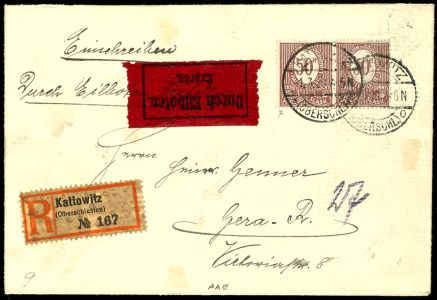 Einschreiben
Durch Eilboten
Durch Eilboten.
Exprès.
50
50
(OBERSCHL.)
(OBERSCHL.)
Herrn Heinr. Genner
Gera-R.
Victoriastr. 8
R
Kattowitz
(Oberschlesien)
№ 167
9